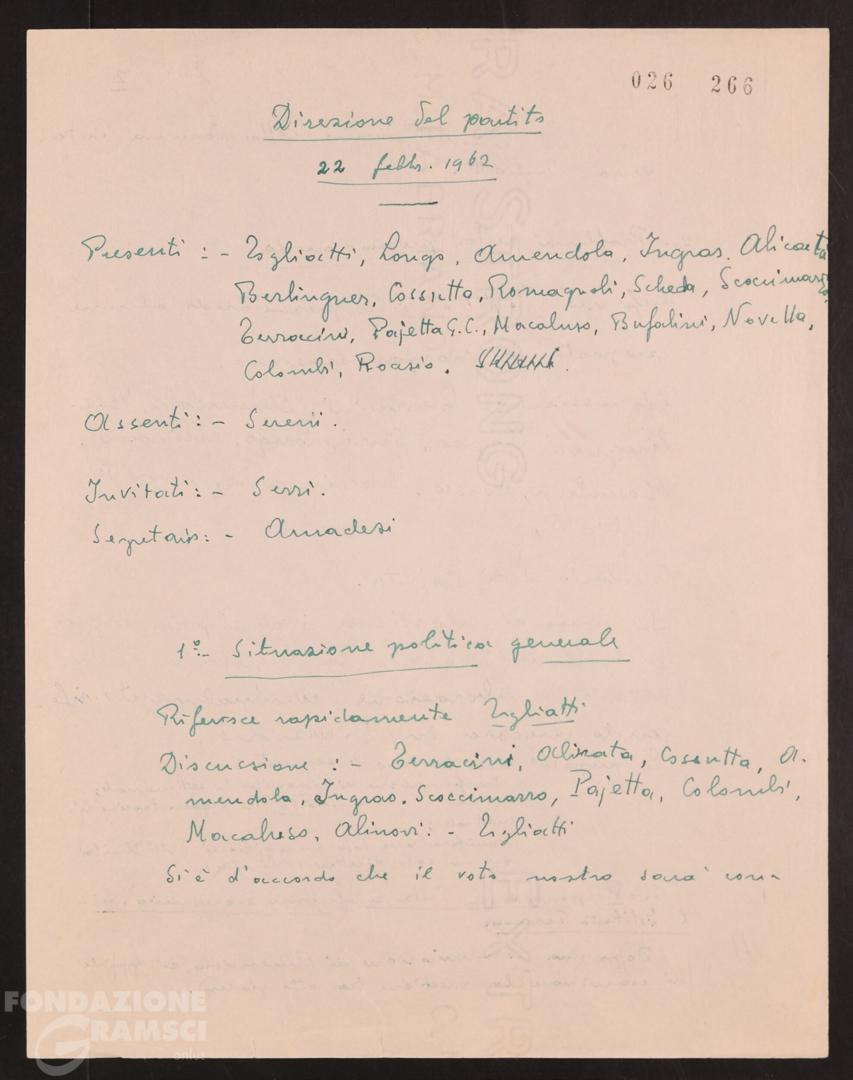 026 266
Direzione del partito
22 febbr. 1962
Presenti : - Togliatti, Longo, Amendola, Ingrao, Alicata
Berlinguer, Cossutta, Romagnoli, Scheda, Scoccimarro,
Terracini, Pajetta G.C., Macaluso, Bufalini, Novella,
Colombi, Roasio.
Assenti : - Sereni.
Invitati : - Serri.
Segretario : - Amadesi
1º - Situazione politica generale
Riferisce rapidamente Togliatti
Discussione : - Terracini, Alicata, Cossutta, A-
mendola, Ingrao, Scoccimarro, Pajetta, Colombi,
Macaluso, Alinovi. - Togliatti
Si è d'accordo che il voto nostro sarà con-
FONDAZIONE
GRAMSCI
onlus